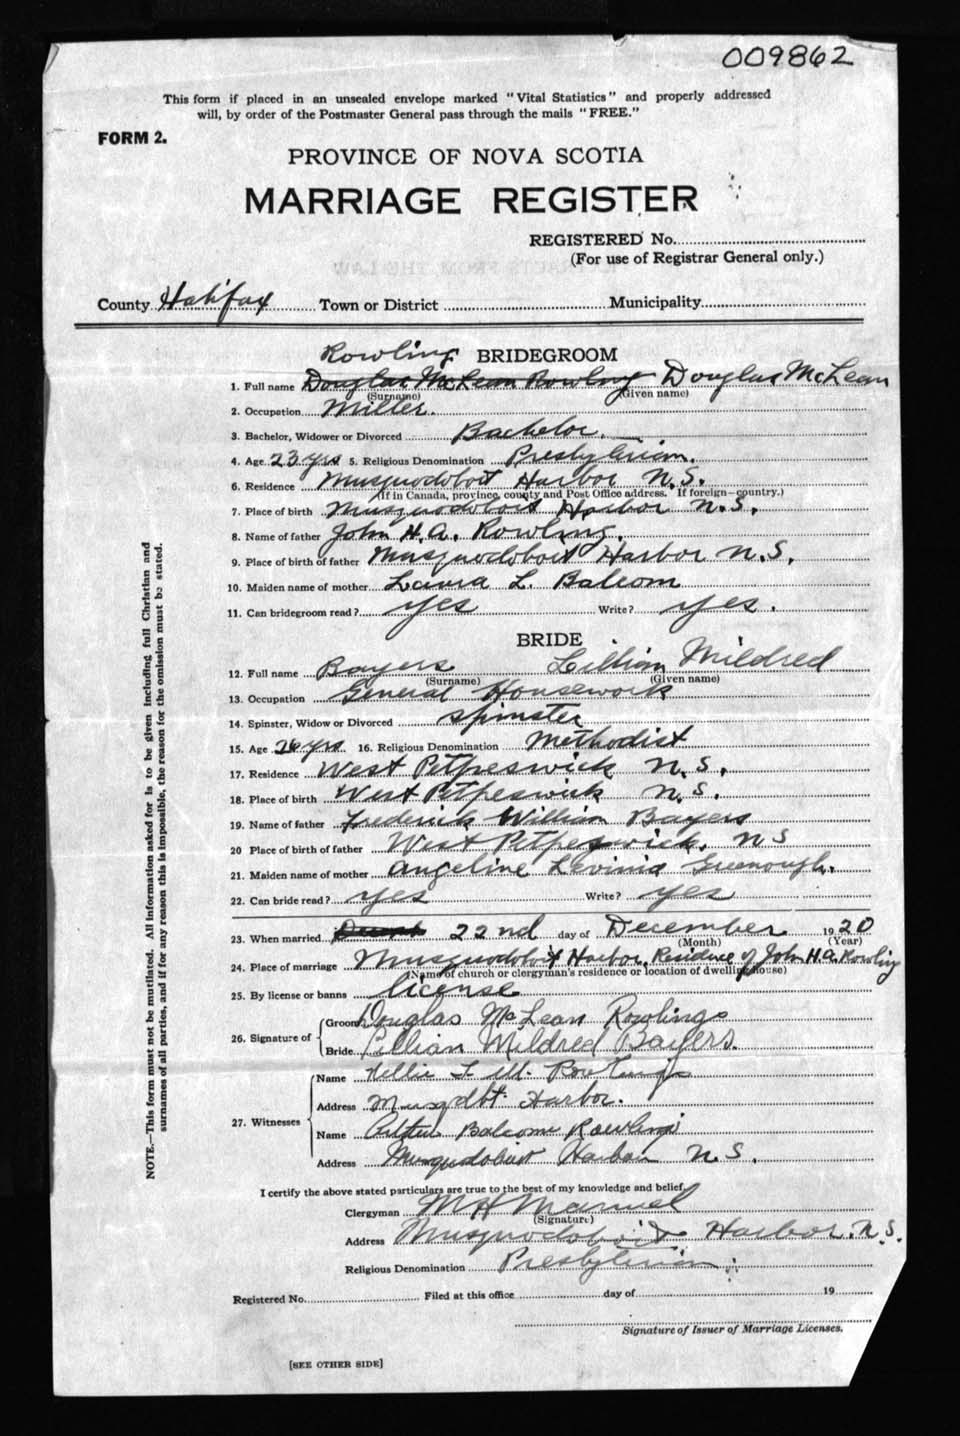 009862
This form if placed in an unsealed envelope marked "Vital Statistics" and properly addressed
will, by order of the Postmaster General pass through the mails "FREE."
FORM 2.
PROVINCE OF NOVA SCOTIA
MARRIAGE REGISTER
REGISTERED No.
(For use of Registrar General only.)
County Halifax Town or District Municipality
Rowling BRIDEGROOM
1. Full name Douglas McLean Rowling Douglas McLean
(Surname) (Given name)
2. Occupation Miller.
3. Bachelor, Widower or Divorced Bachelor.
4. Age 23 yrs 5. Religious Denomination Presbyterian.
6. Residence Musquodoboit Harbor N.S.
(If in Canada, province, county and Post Office address. If foreign—country.)
7. Place of birth Musquodoboit Harbor N.S.
8. Name of father John H.A. Rowling.
9. Place of birth of father Musquodoboit Harbor N.S.
10. Maiden name of mother Laura L. Balcom
11. Can bridegroom read? yes Write? yes.
BRIDE
12. Full name Bayers Lillian Mildred
(Surname) (Given name)
13. Occupation General Housework
14. Spinster, Widow or Divorced Spinster
15. Age yrs 16. Religious Denomination Methodist
17. Residence West Petpeswick N.S.
18. Place of birth West Petpeswick N.S.
19. Name of father Frederick William Bayers
20 Place of birth of father West Petpeswick. N S
21. Maiden name of mother Angeline Levinia Greenough.
22. Can bride read? yes Write? yes
23. When married 22nd day of December 1920
(Month) (Year)
24. Place of marriage Musquodoboit Harbor, Residence of John H.A. Rowling
(Name of church or clergyman's residence or location of dwelling house)
25. By license or banns license
26. Signature of Groom Douglas McLean Rowlings
Bride Lillian Mildred Bayers.
27. Witnesses
Name Nellie L. M. Rowlings
Address Musqdbt. Harbor.
Name Balcome Rowlings
Address Musquodoboit Harbor N.S.
I certify the above stated particulars are true to the best of my knowledge and belief.
Clergyman M H Manuel
(Signature)
Address Musquodoboit Harbor. N.S.
Religious Denomination Presbyterian
Registered No. Filed at this office day of 19
Signature of Issuer of Marriage Licenses.
[SEE OTHER SIDE]
NOTE.—This form must not be mutilated. All information asked for is to be given including full Christian and
surnames of all parties, and if for any reason this is impossible, the reason for the omission must be stated.